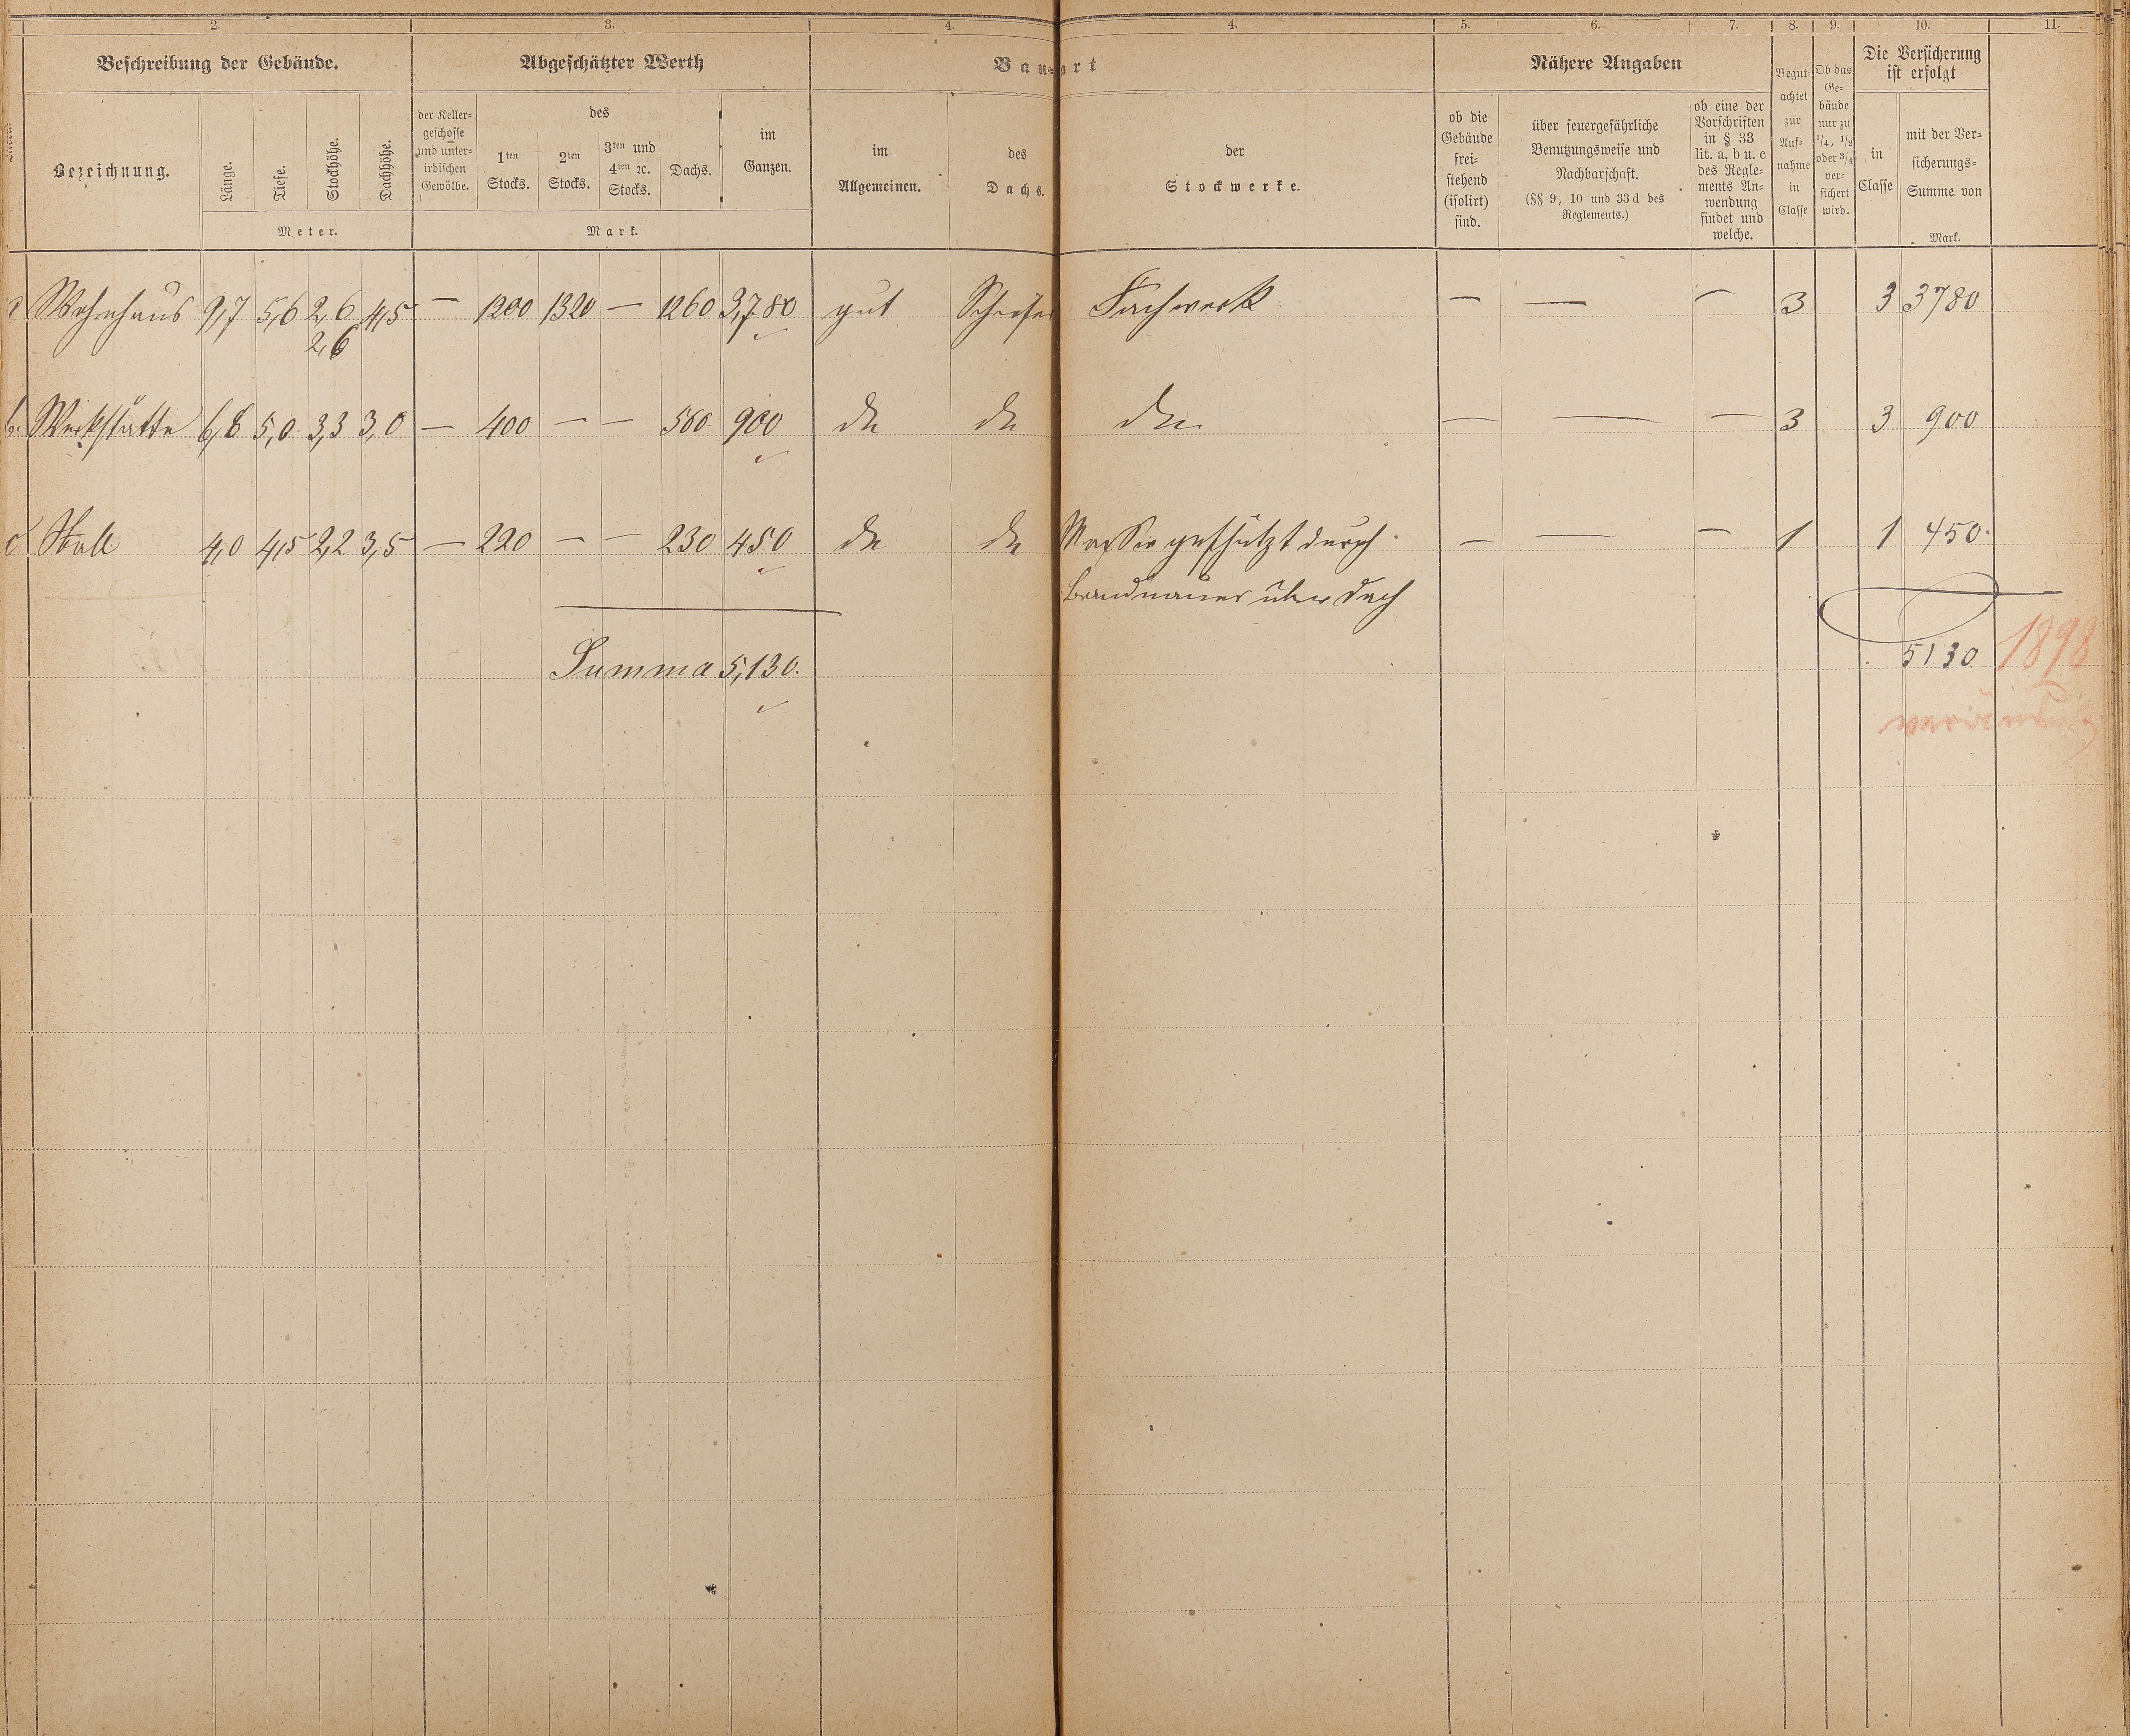 2. 3. 4. 4. 5. 6. 7. 8. 9. 10. 11.
Beschreibung der Gebäude. Abgeschätzter Werth Bau- art Nähere Angaben
Begut- achtet zur Auf- nahme in Classe
Ob das Ge- bäude nur zu 1/4, 1/2 oder 3/4 ver- sichert wird.
Die Versicherung
ist erfolgt
Bezeichnung. Länge. Tiefe. Stockhöhe. Dachhöhe.
Meter.
der Keller-
geschosse
und unter-
irdischen
Gewölbe.
des
1ten Stocks.
2ten Stocks.
3ten und
4ten ꝛc.
Stocks.
Dachs.
im
Ganzen.
Mark.
im
Allgemeinen.
des
Dachs.
der
Stockwerke.
ob die
Gebäude
frei-
stehend
(isolirt)
sind.
über feuergefährliche
Benutzungsweise und
Nachbarschaft.
(§§ 9, 10 und 33 d des
Reglements.)
ob eine der
Vorschriften
in § 33
lit. a, b u. c
des Regle-
ments An-
wendung
findet und
welche.
in
Classe
mit der Ver-
sicherungs-
Summe von
Mark.
a Wohnhaus 9,7 5,6 2,6 4,5 — 1200 1320 — 1260 3,780 gut Schiefer Fachwerk — — — 3 3 3780
2,6
b. Werkstätte 6,8 5,0 3,3 3,0 — 400 — — 500 900 do do do — — — 3 3 900
c Stall 4,0 4,5 2,2 3,5 — 220 — — 230 450 do do Massiv geschützt durch — — — 1 1 450.
Brandmauer über Dach
Summa 5,130. 5130 1898